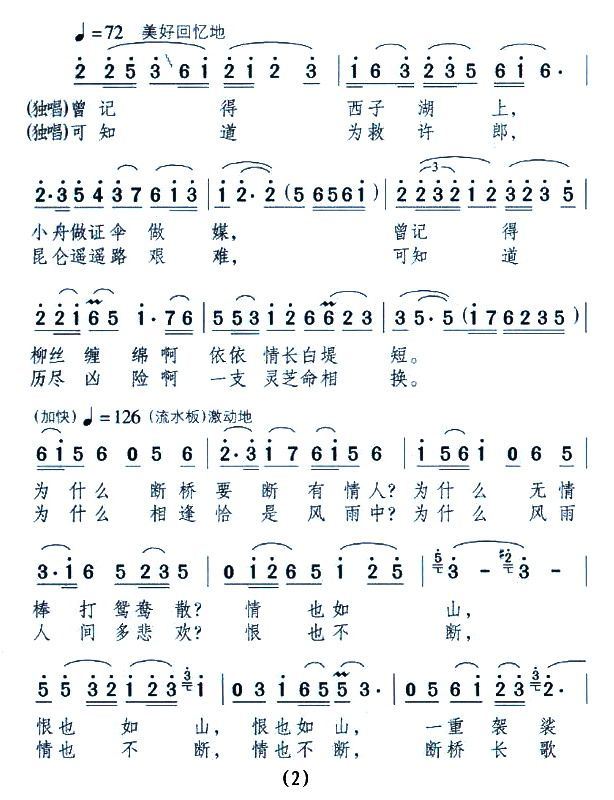 ♩=72 美好回忆地
2 2 5 3 6 i 2 i 2 3 | i 6 3 2 2 3 5 6 i 6. |
(独唱)曾 记 得 西子 湖 上,
(独唱)可 知 道 为救 许 郎,
2·3 5 4 3 7 6 i 3 | i 2·2 (5 6 5 6 i) | 2 2 3 2 i 2 3 2 3 5
小舟做证伞 做 媒, 曾记 得
昆仑遥遥路 艰 难, 可知 道
2 2 i 6 5 i·7 6 | 5 5 3 i 2 6 6 2 3 | 3 5·5 (i 7 6 2 3 5) |
柳丝 缠 绵 啊 依依 情长白堤 短。
历尽 凶 险 啊 一支 灵芝命相 换。
(加快) ♩=126 (流水板)激动地
6 i 5 6 0 5 6 | 2·3 i 7 6 i 5 | i 5 6 i 0 6 5
为 什么 断桥 要 断 有 情人? 为什么 无情
为 什么 相逢 恰 是 风 雨中? 为什么 风雨
3·i 6 5 2 3 5 | 0 i 2 6 5 i 2 5 | 5 3 - #2 3 - |
棒 打 鸳鸯 散? 情 也如 山,
人 间 多悲 欢? 恨 也不 断,
5 5 3 2 i 2 3 3 i | 0 3 i 6 5 5 3 | 0 5 6 i 2 3 3 2·
恨也 如 山, 恨也如山, 一重 袈 裟
情也 不 断, 情也不断, 断桥 长 歌
(2)